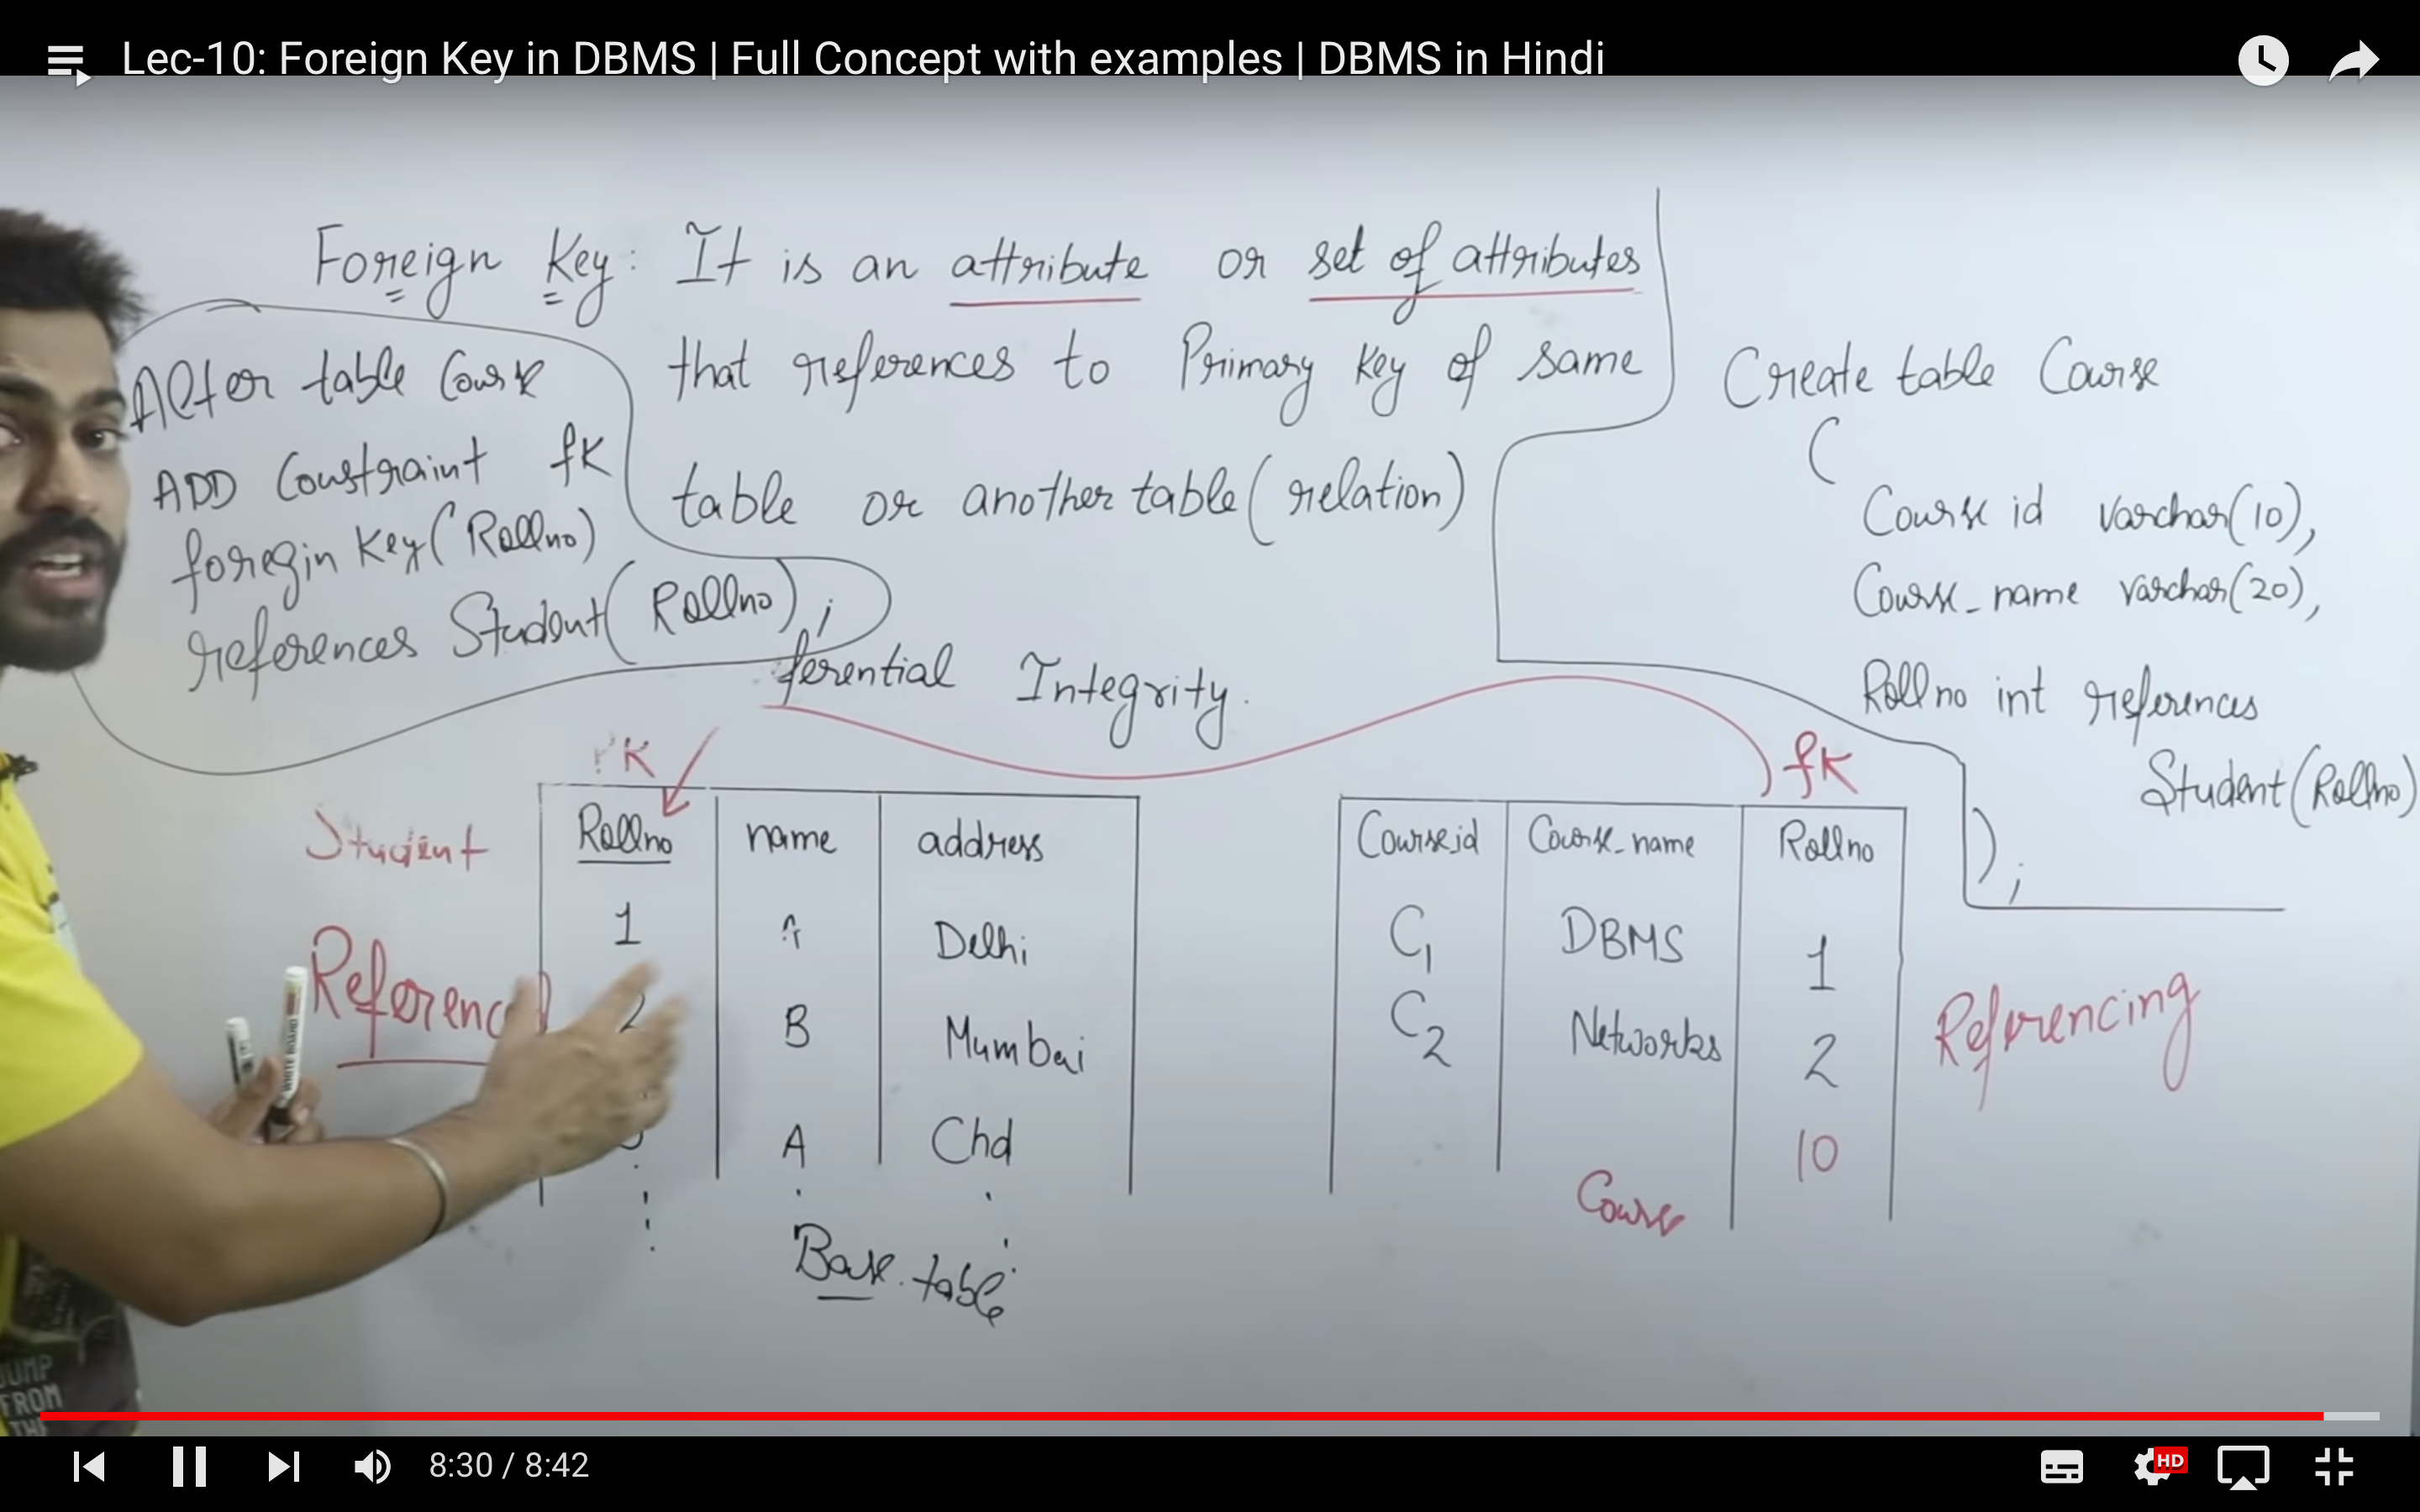 Lec-10: Foreign Key in DBMS | Full Concept with examples | DBMS in Hindi
Foreign Key: It is an attribute or set of attributes
that references to Primary Key of same
table or another table (relation)
Alter table Course
ADD Constraint fK
foregin Key (Rollno)
references Student (Rollno);
ferential Integrity.
Create table Course
(
Course id varchar(10),
Course_name varchar(20),
Rollno int references
Student (Rollno)
);
PK
fK
Student
Rollno name address
1 A Delhi
2 B Mumbai
A Chd
Base table
Referenced
Course_id Course_name Rollno
C1 DBMS 1
C2 Networks 2
10
Course
Referencing
WHITE BOARD
JUMP
FROM
8:30 / 8:42
HD